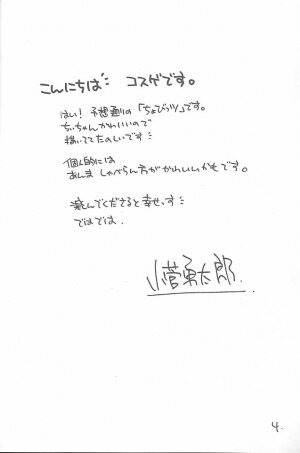 こんにちは゛ コスゲです。
はい！予想通りの「ちょびっツ」です。
ちぃちゃんかわいいので
描いててたのしいです
個人的には
あんましゃべらん方がかわいいかもです。
楽んでくださると幸せっす
ではでは。
小菅勇太郎.
4.